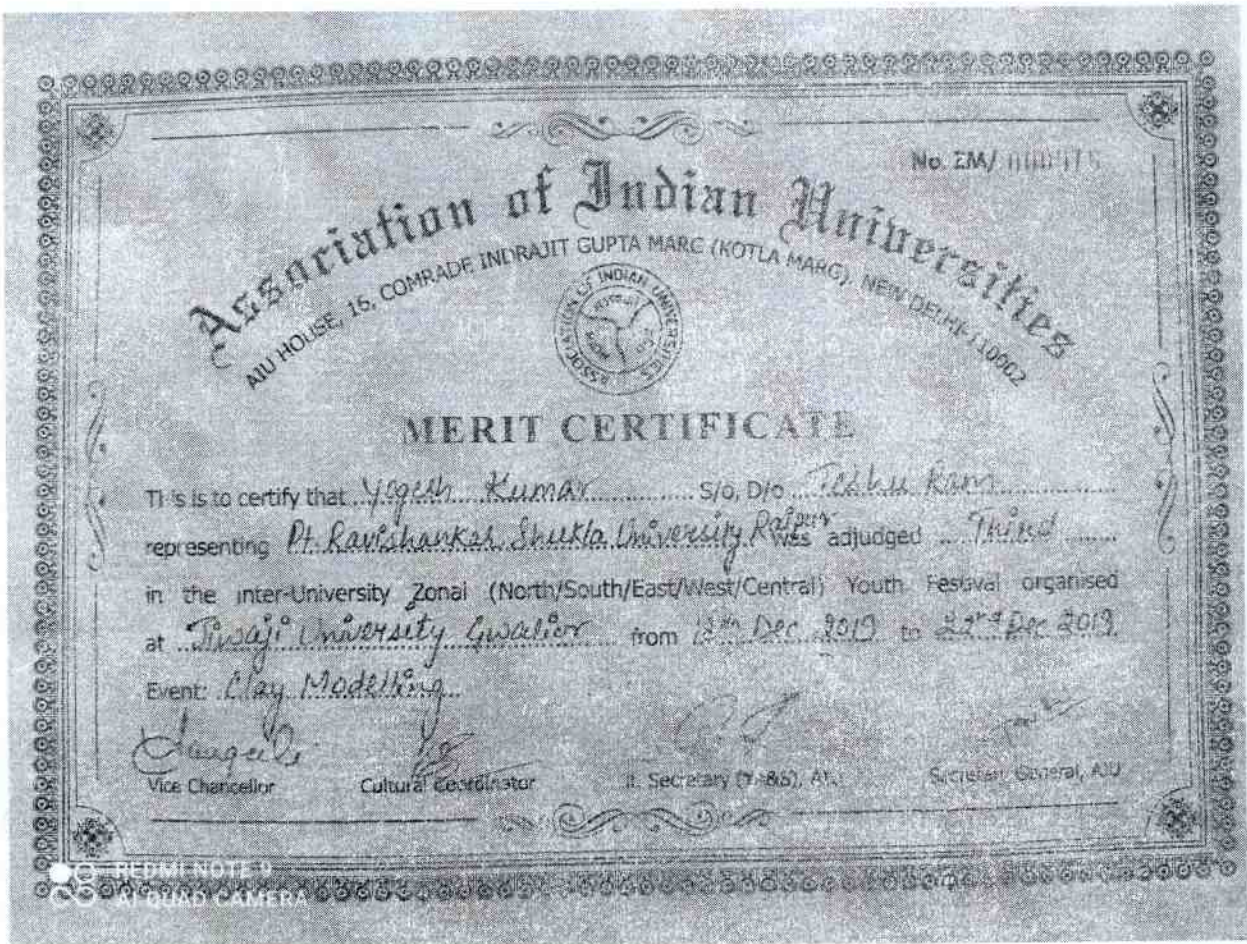 No. ZM/
Association of Indian Universities
AIU HOUSE, 16, COMRADE INDRAJIT GUPTA MARG (KOTLA MARG), NEW DELHI-110002
ASSOCIATION OF INDIAN UNIVERSITIES
MERIT CERTIFICATE
This is to certify that Yogesh Kumar S/o, D/o Ram
representing Pt. Ravishankar Shukla University Raipur was adjudged Third
in the inter-University Zonal (North/South/East/West/Central) Youth Festival organised
at Jiwaji University Gwalior from Dec 2019 to Dec 2019
Event: Clay Modelling
Vice Chancellor Cultural Coordinator Jt. Secretary Secretary General, AIU
REDMI NOTE 9
AI QUAD CAMERA